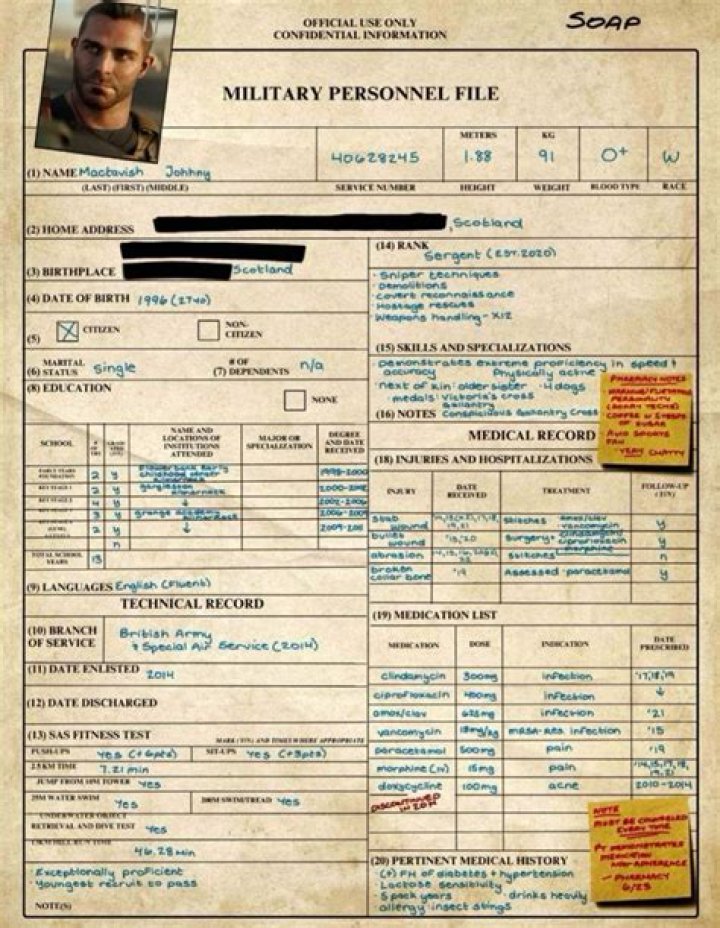 OFFICIAL USE ONLY
CONFIDENTIAL INFORMATION
SOAP
MILITARY PERSONNEL FILE
(1) NAME Mactavish Johnny
(LAST) (FIRST) (MIDDLE)
40628245
SERVICE NUMBER
METERS
1.88
HEIGHT
KG
91
WEIGHT
O+
BLOOD TYPE
W
RACE
(2) HOME ADDRESS , Scotland
(3) BIRTHPLACE Scotland
(4) DATE OF BIRTH 1996 (27yo)
(5) CITIZEN
NON-CITIZEN
MARITAL
(6) STATUS single
# OF
(7) DEPENDENTS n/a
(8) EDUCATION
NONE
SCHOOL
NAME AND LOCATIONS OF INSTITUTIONS ATTENDED
MAJOR OR SPECIALIZATION
DEGREE AND DATE RECEIVED
2 y 1998-2000
2 y
4 y 2002-2006
3 y grange academy 2006-2009
2 y
n
TOTAL SCHOOL YEARS 13
(9) LANGUAGES English (Fluent)
TECHNICAL RECORD
(10) BRANCH OF SERVICE British Army
+ Special Air Service (2014)
(11) DATE ENLISTED 2014
(12) DATE DISCHARGED
(13) SAS FITNESS TEST
MARK (Y/N) AND TIMES WHERE APPROPRIATE
PUSH-UPS yes (+6pts) SIT-UPS yes (+3pts)
2.5 KM TIME 7.21 min
JUMP FROM 10M TOWER yes
25M WATER SWIM yes
200M SWIM/TREAD yes
UNDERWATER OBJECT
RETRIEVAL AND DIVE TEST yes
HILL RUN TIME 46.28 min
· Exceptionally proficient
· Youngest recruit to pass
NOTE(S)
(14) RANK
Sergent (EST. 2020)
· Sniper techniques
· Demolitions
· covert reconnaissance
· Hostage rescues
· Weapons handling - X12
(15) SKILLS AND SPECIALIZATIONS
· Demonstrates extreme proficiency in speed +
accuracy Physically active
· next of kin: older sister · 4 dogs
· medals: Victoria's cross
(16) NOTES Conspicuous gallantry cross
PHARMACY NOTES
PERSONALITY
COFFEE W
OF SUGAR
FAN
- VERY CHATTY
MEDICAL RECORD
(18) INJURIES AND HOSPITALIZATIONS
INJURY
DATE RECEIVED
TREATMENT
FOLLOW-UP (Y/N)
stab wound stitches amox/clav vancomycin y
bullet wound surgery + clindamycin ciprofloxacin morphine y
abrasion stitches n
broken collar bone '19 Assessed · paracetamol y
(19) MEDICATION LIST
MEDICATION
DOSE
INDICATION
DATE PRESCRIBED
clindamycin 300mg infection '17,'18,'19
ciprofloxacin 400mg infection ↓
amox/clav 625mg infection '21
vancomycin 15mg/kg MRSA infection '15
paracetamol 500mg pain '19
morphine (IV) 15mg pain
doxycycline 100mg acne 2010-2014
DISCONTINUED IN 2014
NOTE
MUST BE COUNSELED
EVERY TIME
PT DEMONSTRATES
MEDICATION
NON-ADHERENCE
- PHARMACY
6/23
(20) PERTINENT MEDICAL HISTORY
· (+) FH of diabetes + hypertension
· Lactose sensitivity
· 5 pack years · drinks heavily
· allergy: insect stings